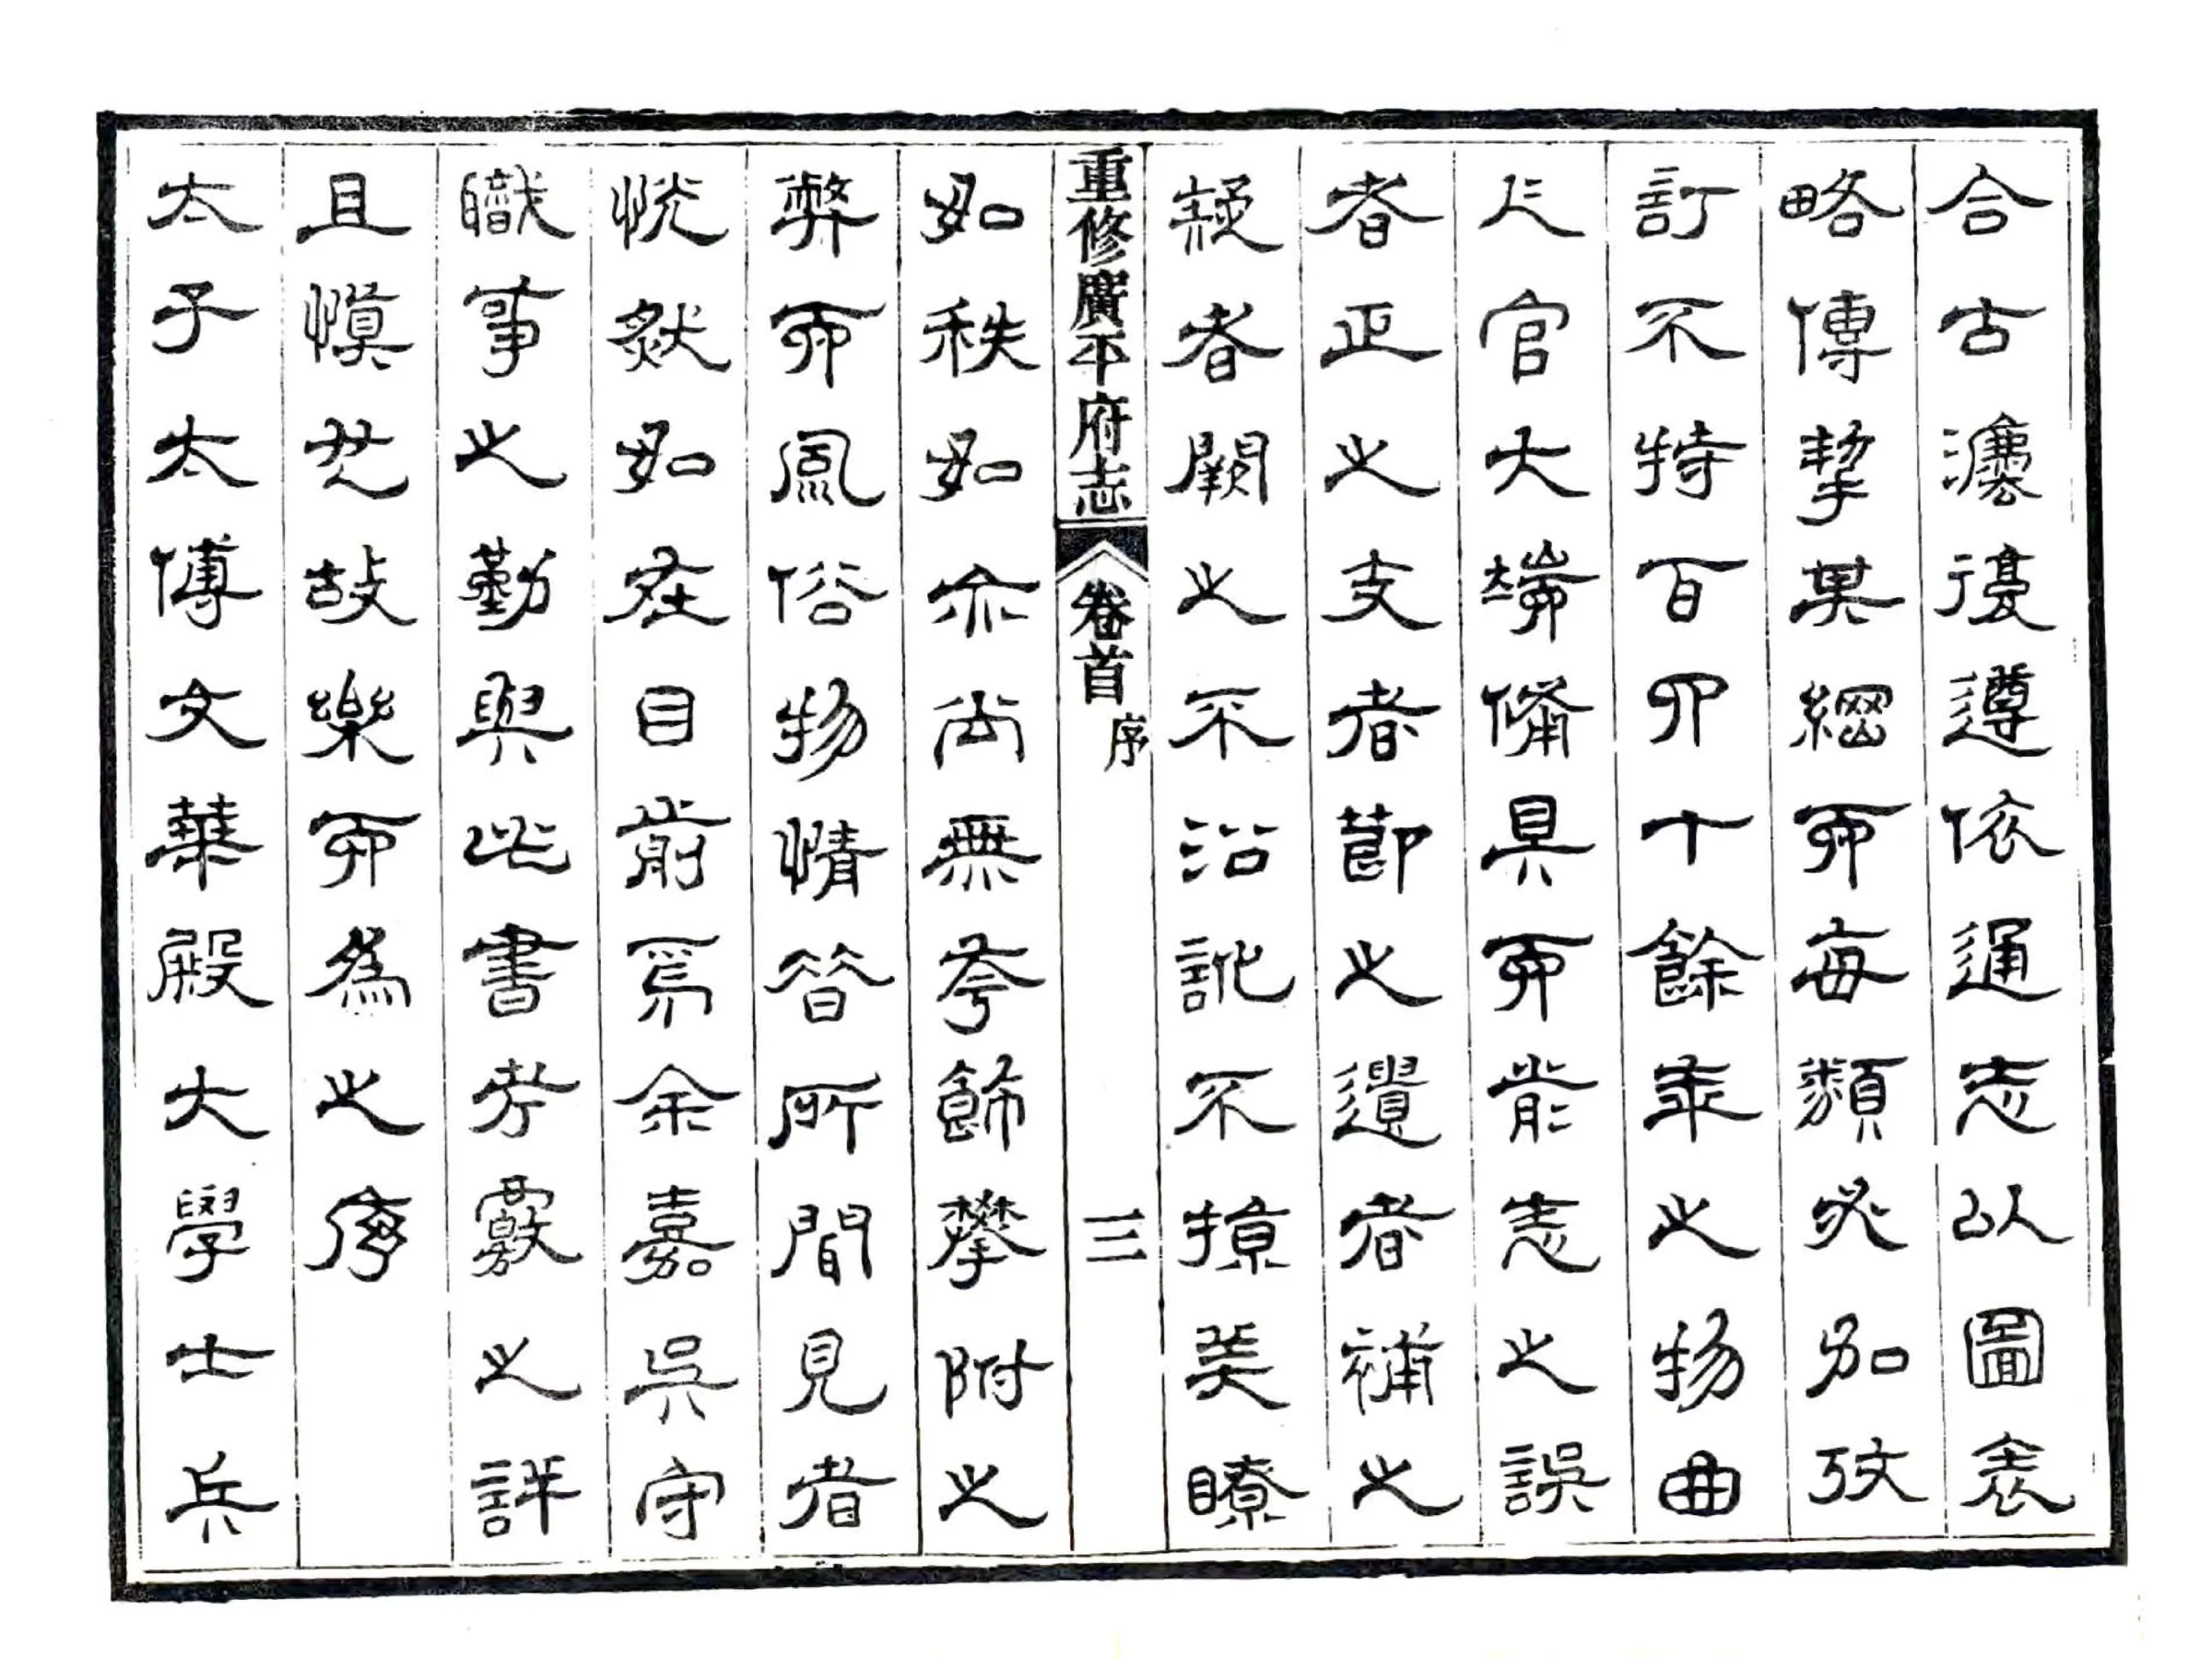 合古灋復遵依通志以圖表
略傳挈其綱而每類必加攷
訂不特百四十餘年之物曲
人官大端備具而前志之誤
者正之支者節之遺者補之
疑者闕之不沿訛不掠美瞭
重修廣平府志 卷首 序 三
如秩如亦尚無夸飾攀附之
弊而風俗物情昔所間見者
恍然如在目前焉余嘉吳守
職事之勤與此書考覈之詳
且慎也故樂而為之序
太子太傅文華殿大學士兵